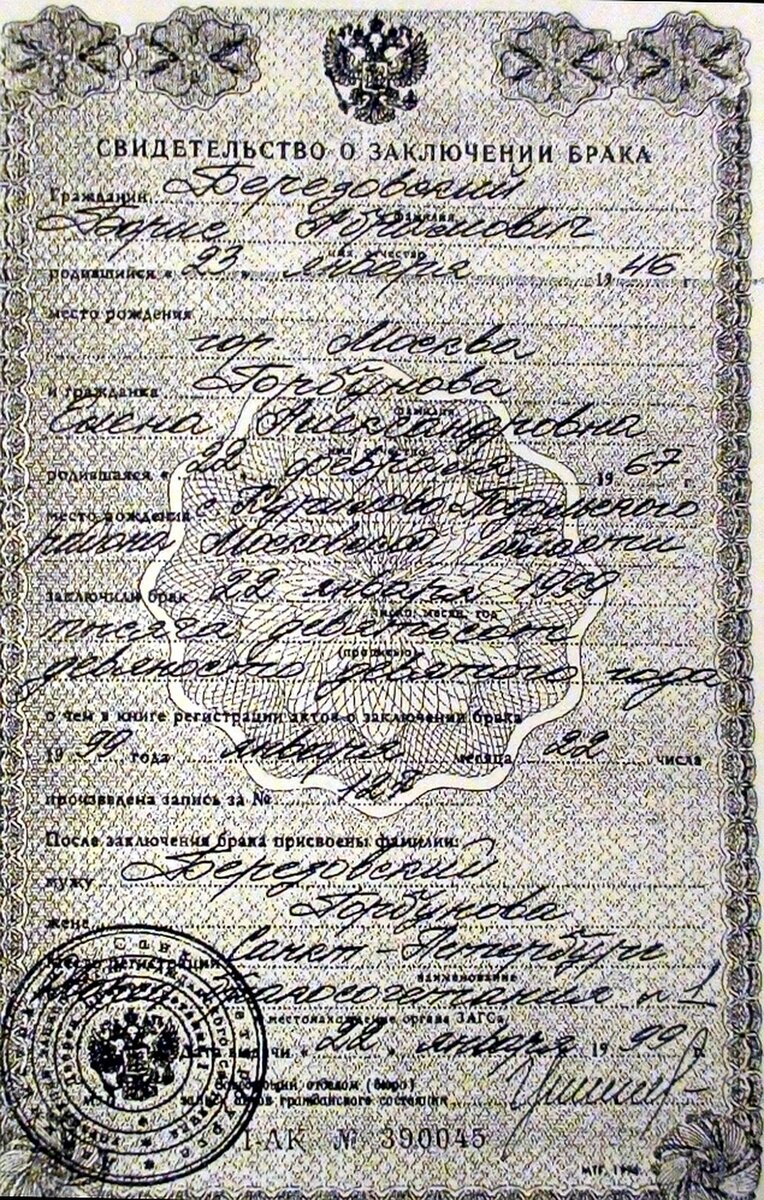 СВИДЕТЕЛЬСТВО О ЗАКЛЮЧЕНИИ БРАКА
Гражданин Березовский
фамилия
Борис Абрамович
имя, отчество
родившийся « 23 » января 19 46 г.
место рождения
гор Москва
и гражданка Горбунова
фамилия
Елена Александровна
имя, отчество
родившаяся « 22 » февраля 19 67 г.
место рождения с. Подольского
района Московской области
заключили брак 22 января 1999
число, месяц, год
тысяча девятьсот
(прописью)
девяносто девятого года
о чем в книге регистрации актов о заключении брака
19 99 года января месяца 22 числа
произведена запись за № 127
После заключения брака присвоены фамилии:
мужу Березовский
жене Горбунова
Место регистрации Санкт-Петербург
наименование
Дворец Бракосочетания № 1
местонахождение органа ЗАГСа
Дата выдачи « 22 » января 19 99 г.
Заведующий отделом (бюро)
М.П. записи актов гражданского состояния
I-АК № 390045